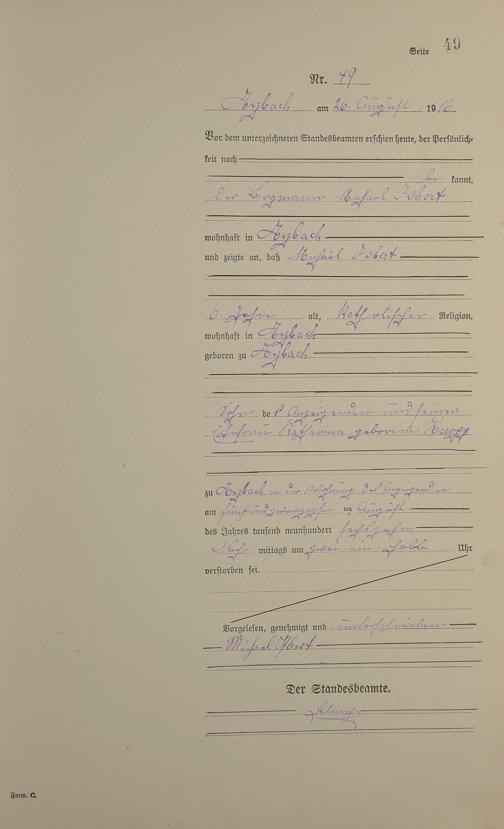 Seite 49
Nr. 49
Aßbach am 26. August 1916.
Vor dem unterzeichneten Standesbeamten erschien heute, der Persönlich-
keit nach
be kannt,
der Bergmann Michael Isbert
wohnhaft in
und zeigte an, daß Michael Isbert
6 Jahre alt, Katholischer Religion,
wohnhaft in
geboren zu
Sohn des Anzeigenden und seiner
Ehefrau Katharina geborenen Knopp
zu in der Wohnung des Anzeigenden
am fünfundzwanzigs ten August
des Jahres tausend neunhundert sechszehn
Nach mittags um zwei ein halb Uhr
verstorben sei.
Vorgelesen, genehmigt und unterschrieben
Michael Isbert
Der Standesbeamte.
Form. C.